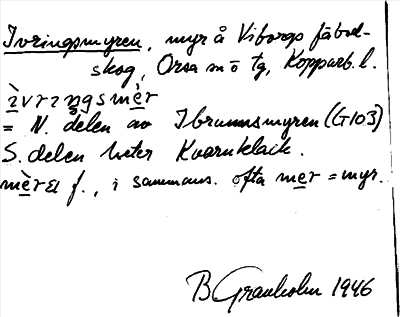 Ivringsmyren, myr å Viborgs fäbod-
skog, Orsa sn ö tg, Kopparb. l.
ìvrɪŋgsmèr
= N. delen av Ibrunnsmyren (G103)
S. delen heter Kvarnklaik.
f., i sammans. ofta mer = myr.
B Granholm 1946